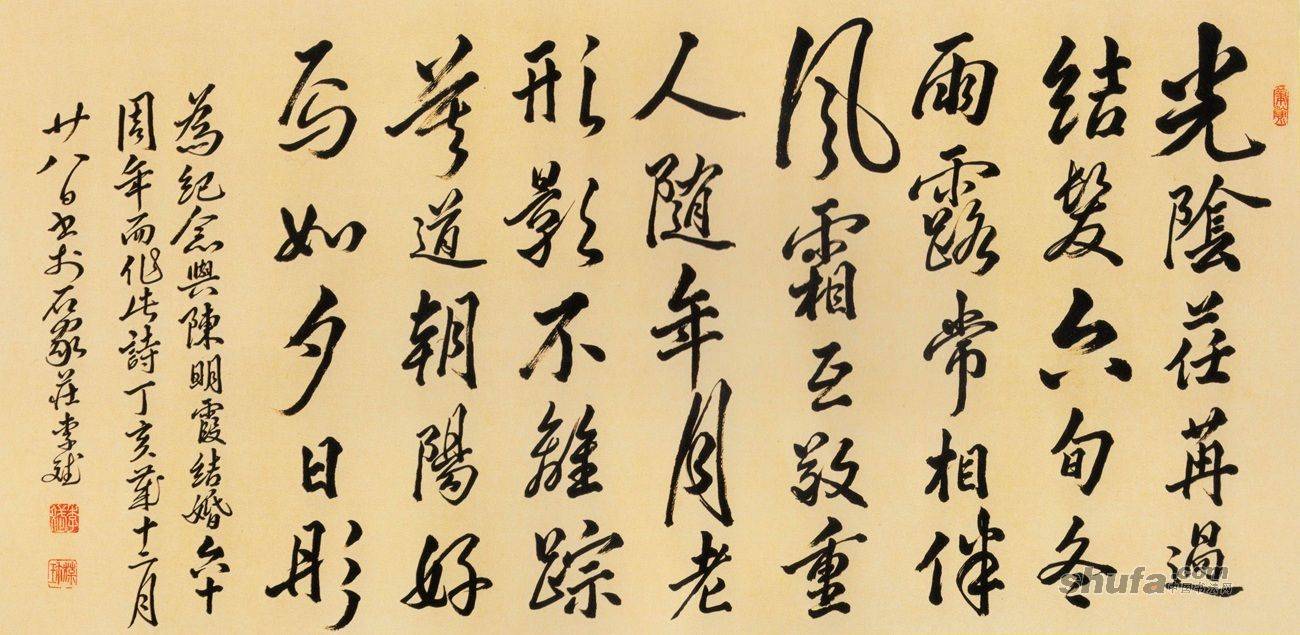 光陰荏苒過
結髮六旬冬
雨露常相伴
風霜相互敬重
人隨年月老
形影不離踪
莫道朝陽好
焉如夕日彤
為紀念與陳明霞結婚六十
周年而作此詩丁亥歲十二月
廿八日書於石家莊李斌
shufa.com
中国书法网